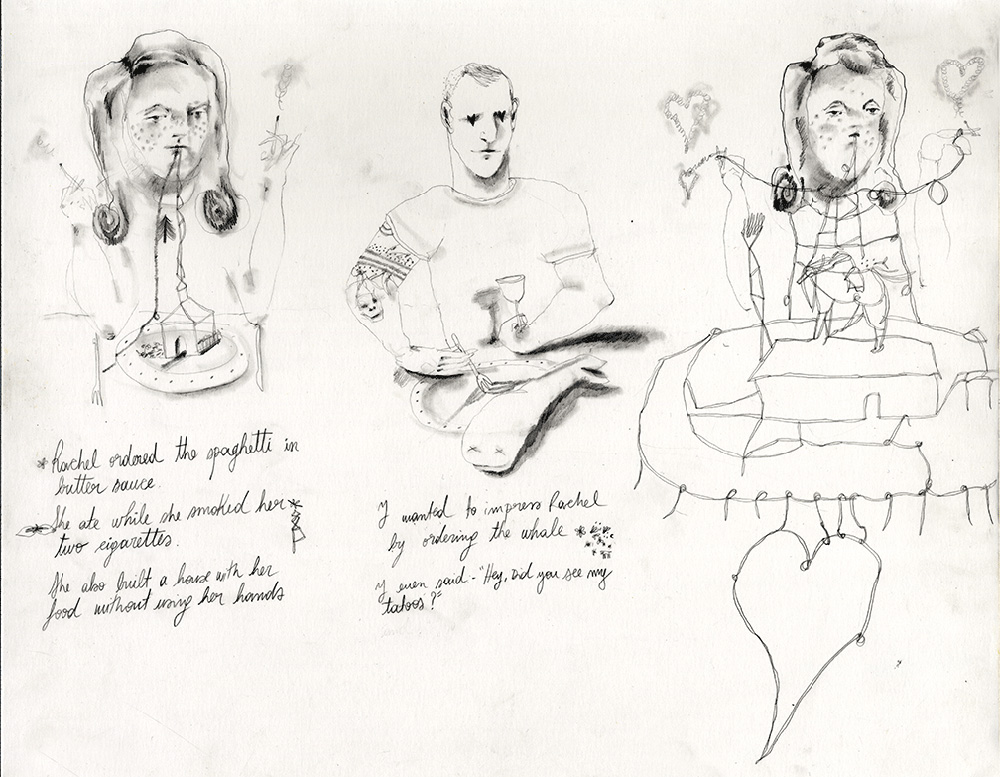 Rachel ordered the spaghetti in
butter sauce.
She ate while she smoked her
two cigarettes.
She also built a house with her
food without using her hands
I wanted to impress Rachel
by ordering the whale
I even said - "Hey, Did you see my
tatoos?"